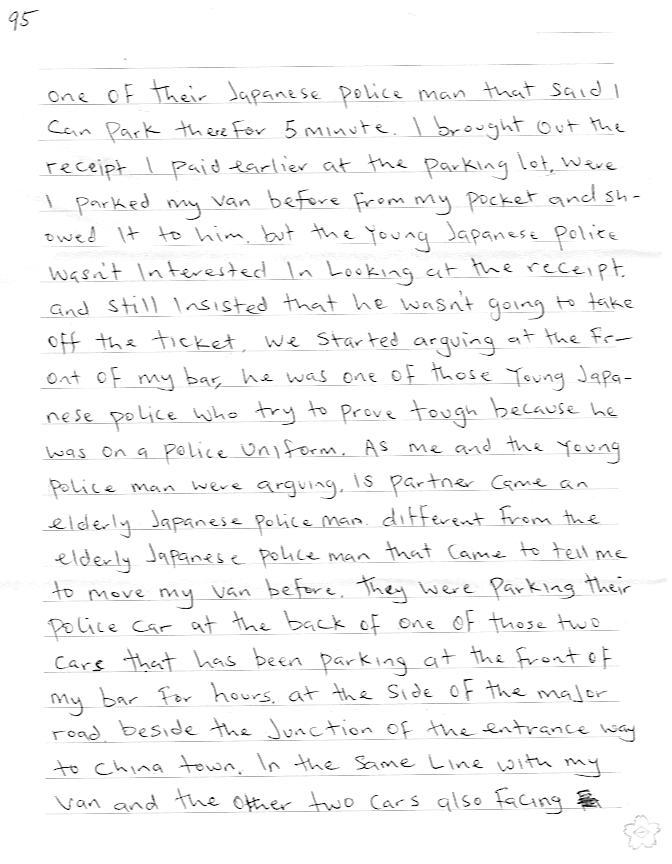 95
one of their Japanese police man that said I
Can Park there for 5 minute. I brought out the
receipt I paid earlier at the parking lot, were
I parked my van before from my pocket and sh-
owed It to him. but the young Japanese police
wasn't Interested In Looking at the receipt.
and still Insisted that he wasn't going to take
off the ticket. we started arguing at the fr-
ont of my bar, he was one of those young Japa-
nese police who try to prove tough because he
was on a police uniform. As me and the young
police man were arguing. Is partner came an
elderly Japanese police man. different from the
elderly Japanese police man that came to tell me
to move my van before. They were parking their
police car at the back of one of those two
cars that has been parking at the front of
my bar for hours. at the side of the major
road. beside the Junction of the entrance way
to China town. In the same Line with my
van and the other two cars also facing